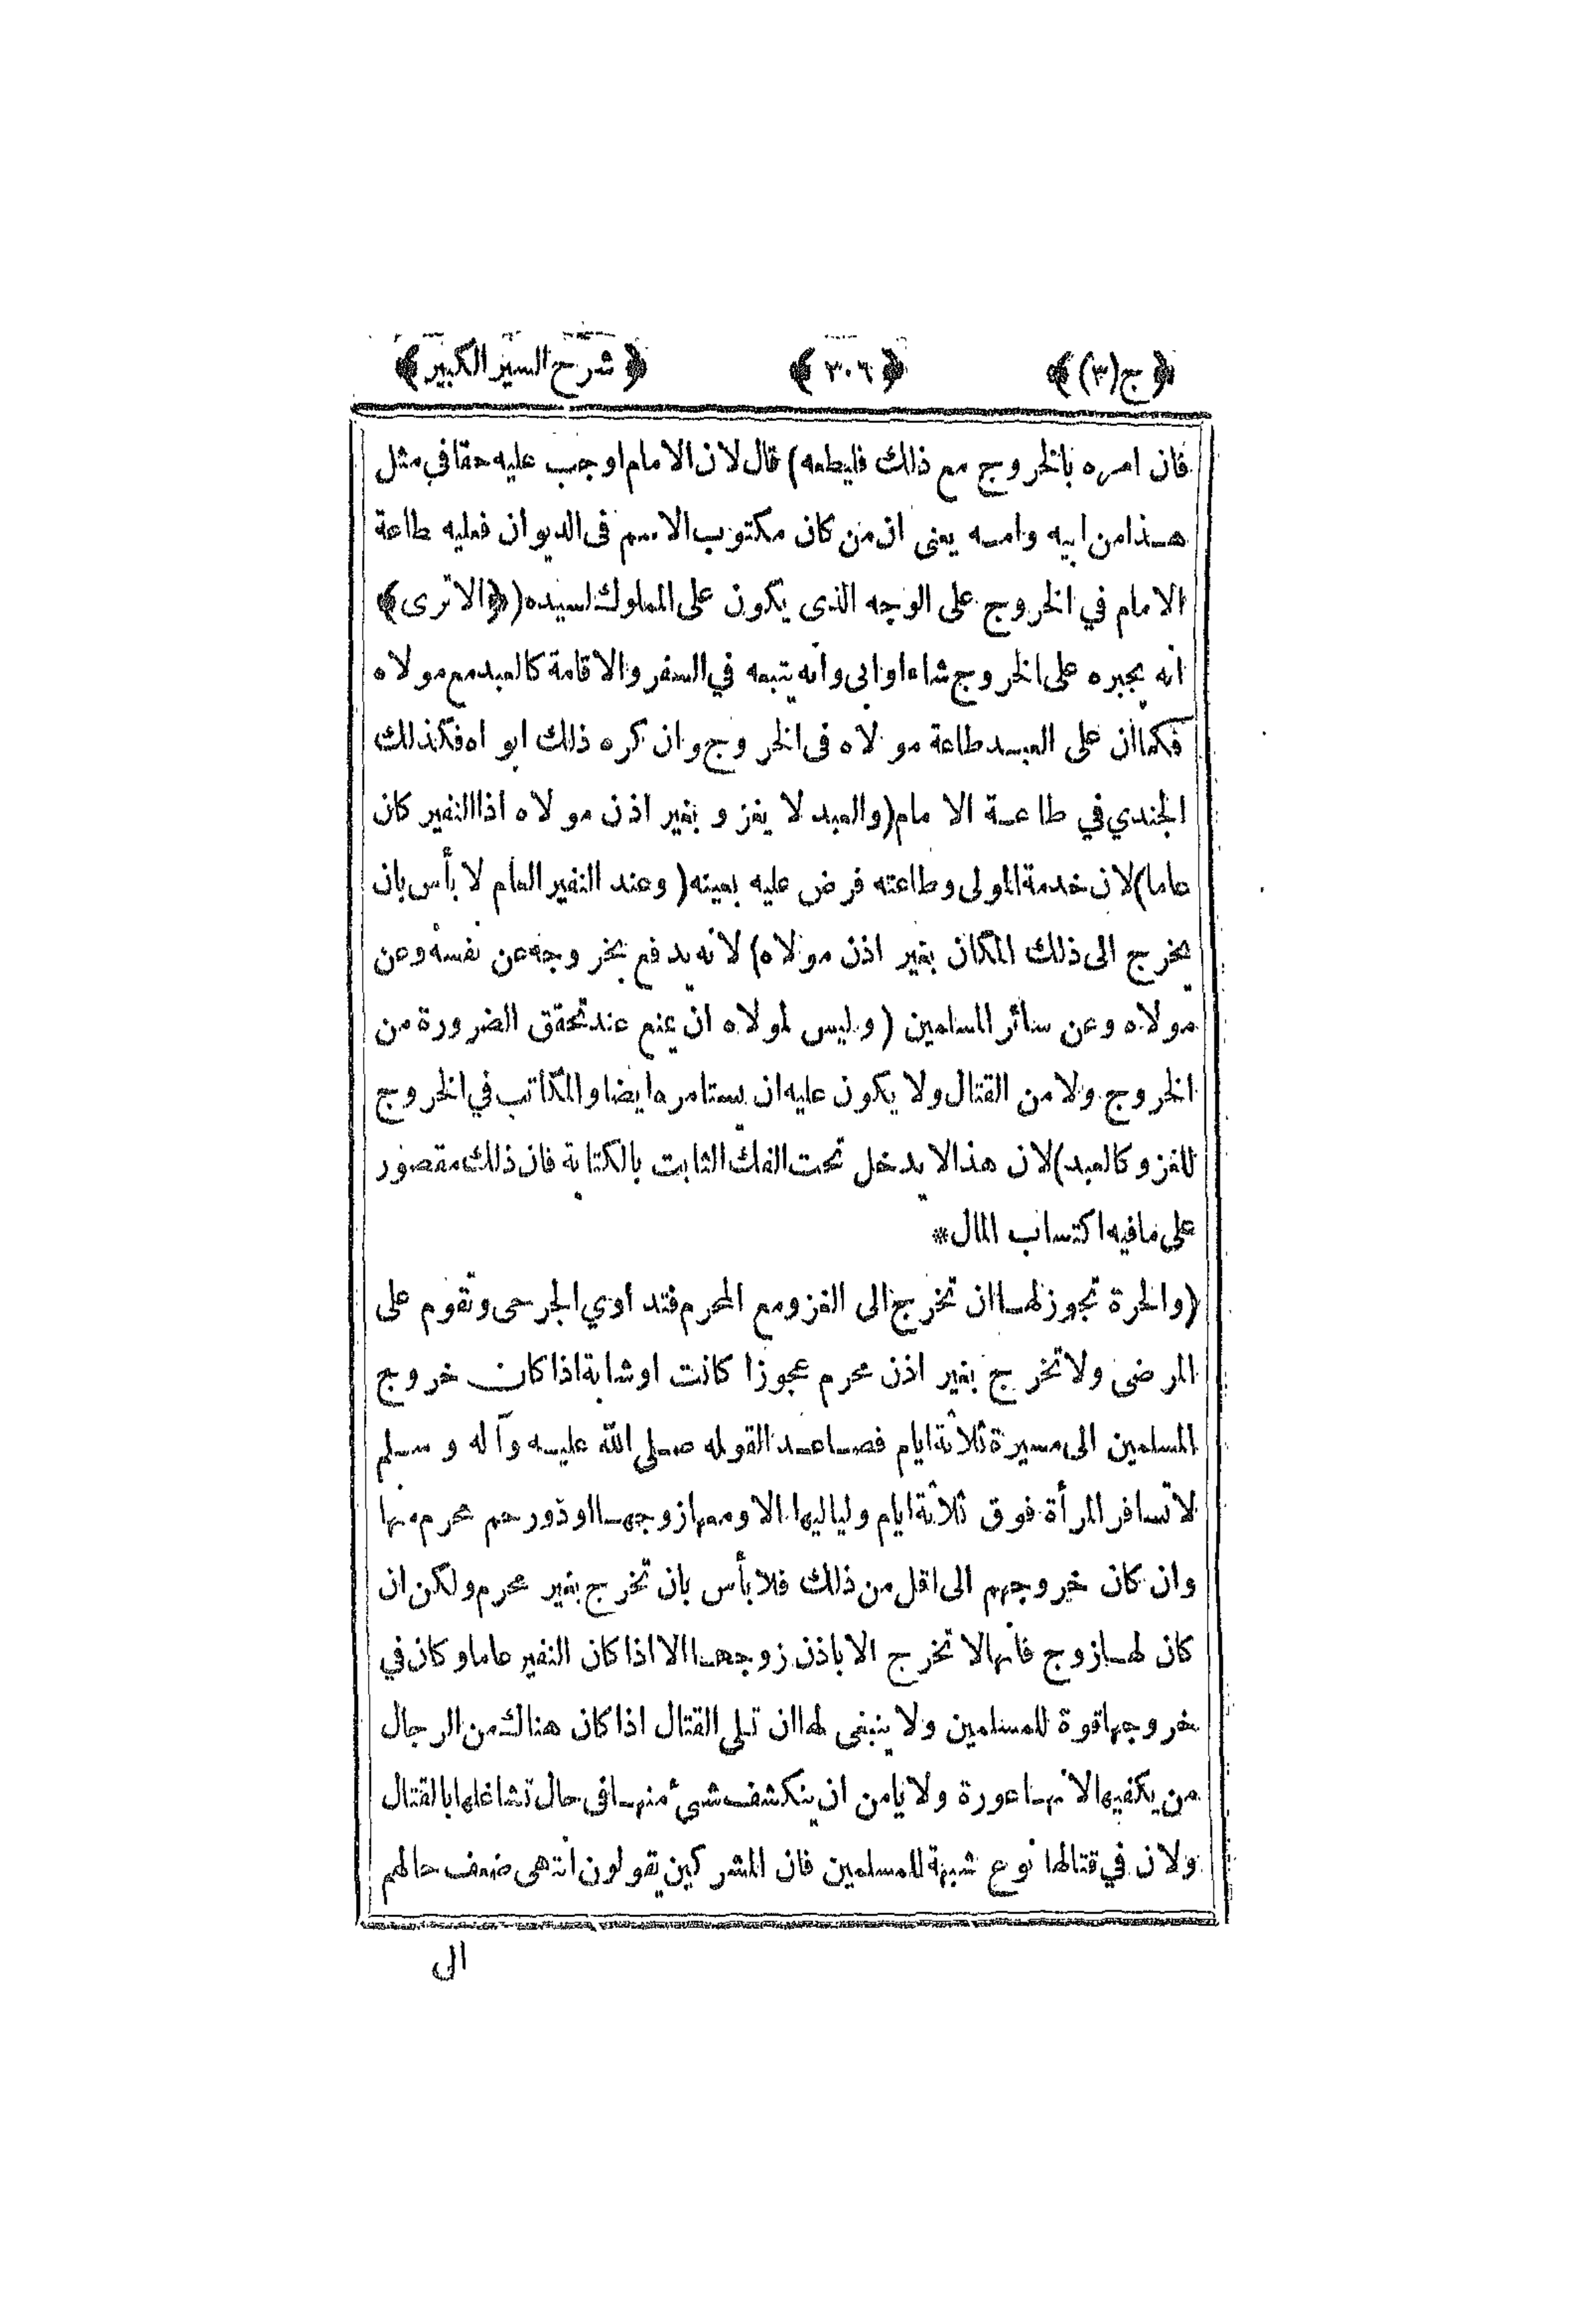 ﴿ ج (٣) ﴾ ﴿ ٣٠٦ ﴾ ﴿ شرح السير الكبير ﴾
فان امره بالخروج مع ذلك فليطعه) قال لان الامام اوجب عليه حقا في مثل
هذا من ابيه وامه يعنى ان من كان مكتوب الاسم فى الديوان فعليه طاعة
الامام في الخروج على الوجه الذى يكون على المملوك لسيده (﴿الا ترى﴾
انه يجبره على الخروج شاء او ابى وانه يتبعه في السفر والاقامة كالعبد مع مولاه
فكما ان على العبد طاعة مولاه فى الخروج وان كره ذلك ابواه فكذلك
الجندي في طاعة الامام (والعبد لا يغزو بغير اذن مولاه اذا النفير كان
عاما) لان خدمة المولى وطاعته فرض عليه بعينه (وعند النفير العام لا بأس بان
يخرج الى ذلك المكان بغير اذن مولاه) لانه يدفع بخروجه عن نفسه وعن
مولاه وعن سائر المسلمين (وليس لمولاه ان يمنع عند تحقق الضرورة من
الخروج ولا من القتال ولا يكون عليه ان يستامره ايضا والمكاتب في الخروج
للغزو كالعبد) لان هذا لا يدخل تحت الفك الثابت بالكتابة فان ذلك مقصور
على ما فيه اكتساب المال *
(والحرة تجوز لها ان تخرج الى الغزو مع المحرم فتداوي الجرحى وتقوم على
المرضى ولا تخرج بغير اذن محرم عجوزا كانت او شابة اذا كان خروج
المسلمين الى مسيرة ثلاثة ايام فصاعدا لقوله صلى الله عليه وآله وسلم
لا تسافر المرأة فوق ثلاثة ايام ولياليها الا ومعها زوجها او ذو رحم محرم منها
وان كان خروجهم الى اقل من ذلك فلا بأس بان تخرج بغير محرم ولكن ان
كان لها زوج فانها لا تخرج الا باذن زوجها الا اذا كان النفير عاما وكان في
خروجها قوة للمسلمين ولا ينبغى لها ان تلى القتال اذا كان هناك من الرجال
من يكفيها لانها عورة ولا يامن ان ينكشف شئ منها فى حال تشاغلها بالقتال
ولان في قتالها نوع شبهة للمسلمين فان المشركين يقولون انتهى ضعف حالهم
الى